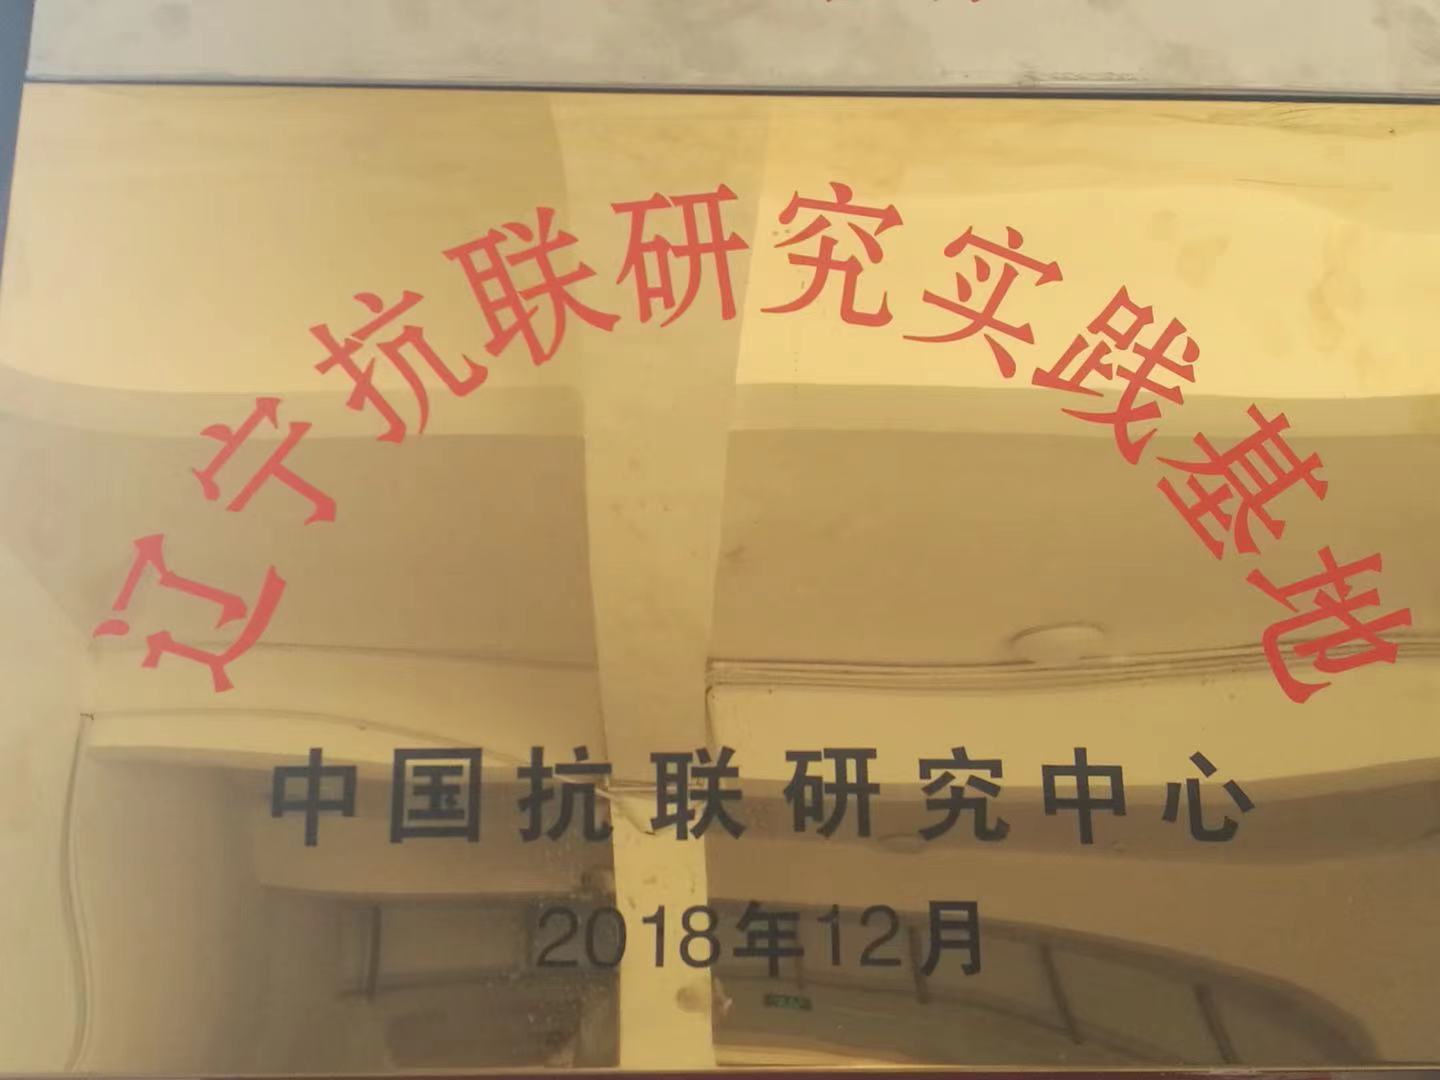 辽宁抗联研究实践基地
中国抗联研究中心
2018年12月